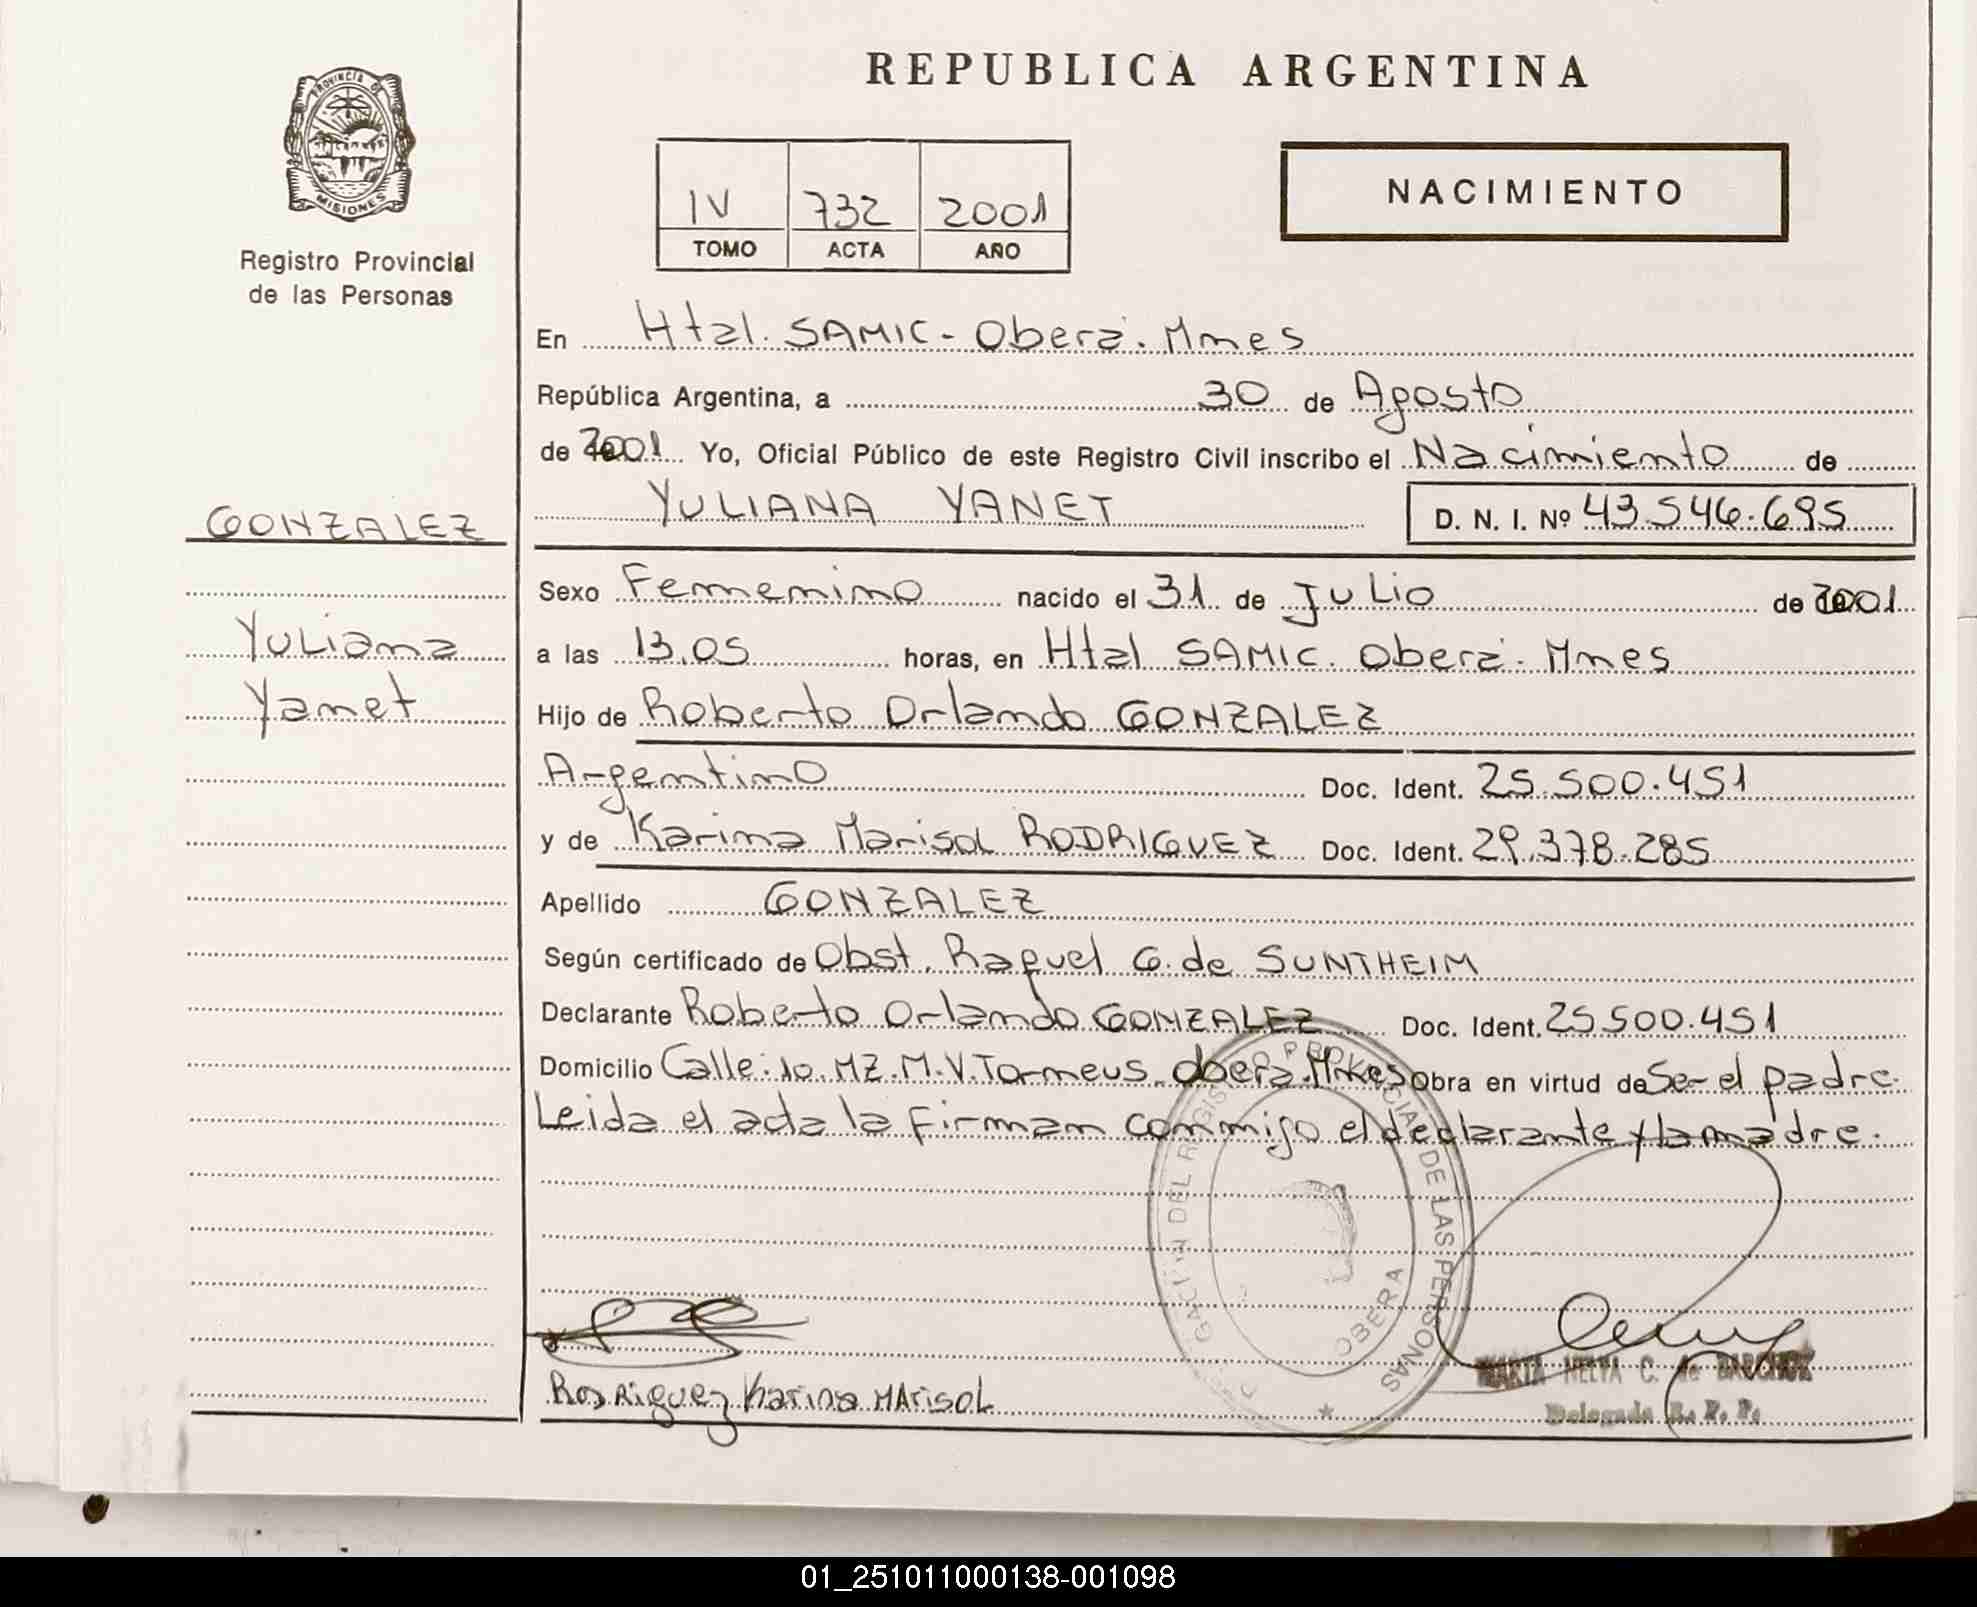 REPUBLICA ARGENTINA
PROVINCIA DE
MISIONES
Registro Provincial
de las Personas
IV 732 2001
TOMO ACTA AÑO
NACIMIENTO
En Htal. SAMIC - Oberá. Mnes
República Argentina, a 30 de Agosto
de 2001 Yo, Oficial Público de este Registro Civil inscribo el Nacimiento de
YULIANA YANET D. N. I. Nº 43.546.695
GONZALEZ
Yuliana
Yanet
Sexo Femenino nacido el 31 de Julio de 2001
a las 13.05 horas, en Htal SAMIC. Oberá. Mnes
Hijo de Roberto Orlando GONZALEZ
Argentino Doc. Ident. 25.500.451
y de Karina Marisol RODRIGUEZ Doc. Ident. 29.378.285
Apellido GONZALEZ
Según certificado de Obst. Raquel G. de SUNTHEIM
Declarante Roberto Orlando GONZALEZ Doc. Ident. 25500.451
Domicilio Calle: 10. MZ. M. V. Tormeus. Oberá. Mnes Obra en virtud de Ser el padre.
Leida el acta la firman conmigo el declarante y la madre.
DEL REGISTRO PROVINCIAL DE LAS PERSONAS
OBERA
Rodriguez Karina MArisoL
MARTA NELVA C. de BARCHUK
Delegada R. P. P.
01_251011000138-001098